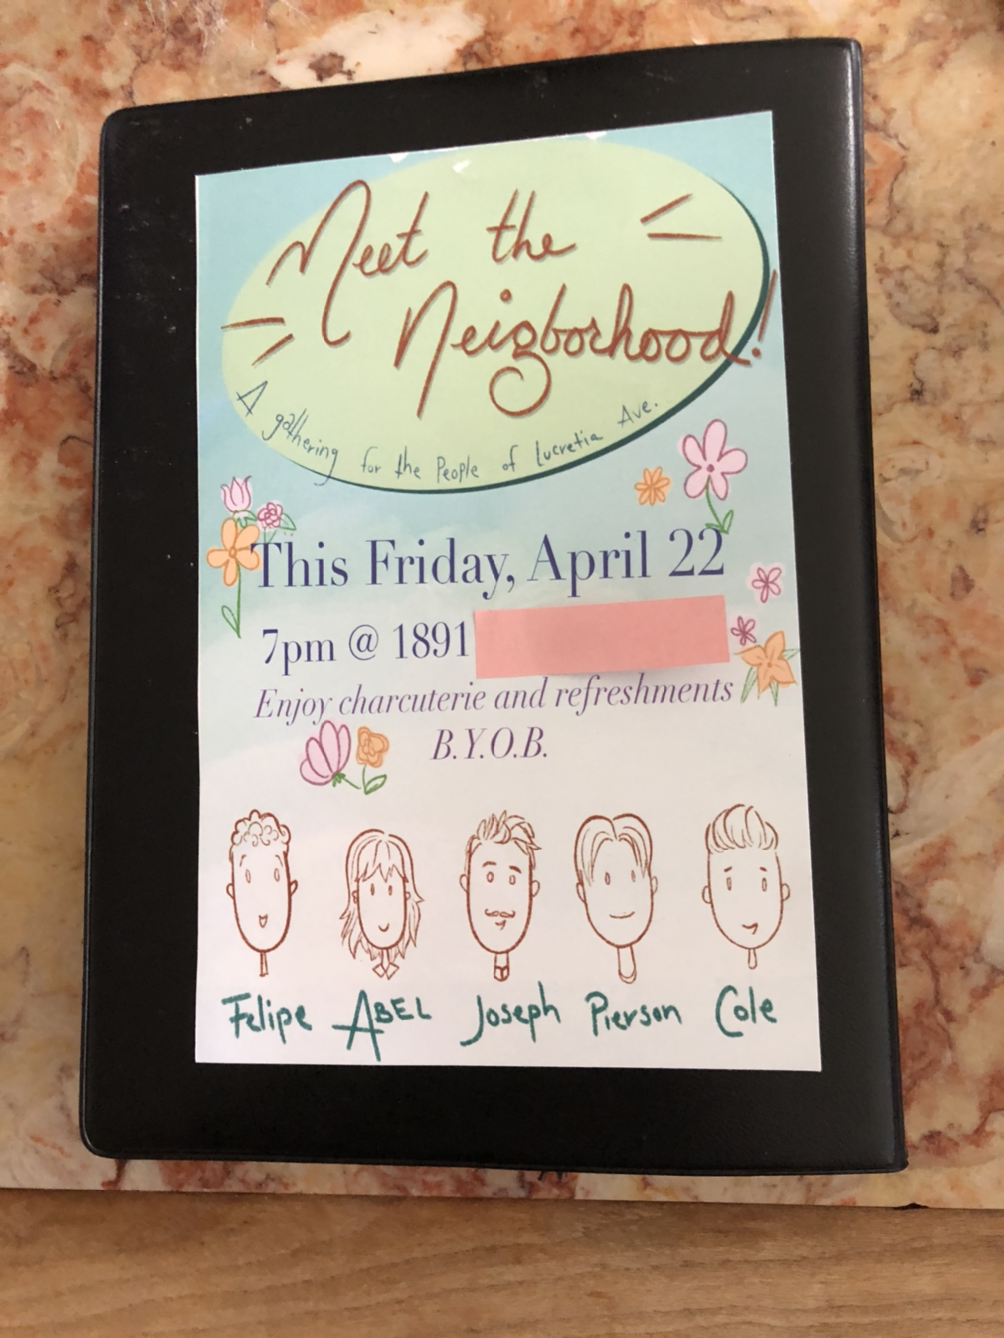 Meet the
Neigborhood!
A gathering for the People of Lucretia Ave.
This Friday, April 22
7pm @ 1891
Enjoy charcuterie and refreshments
B.Y.O.B.
Felipe ABEL Joseph Pierson Cole